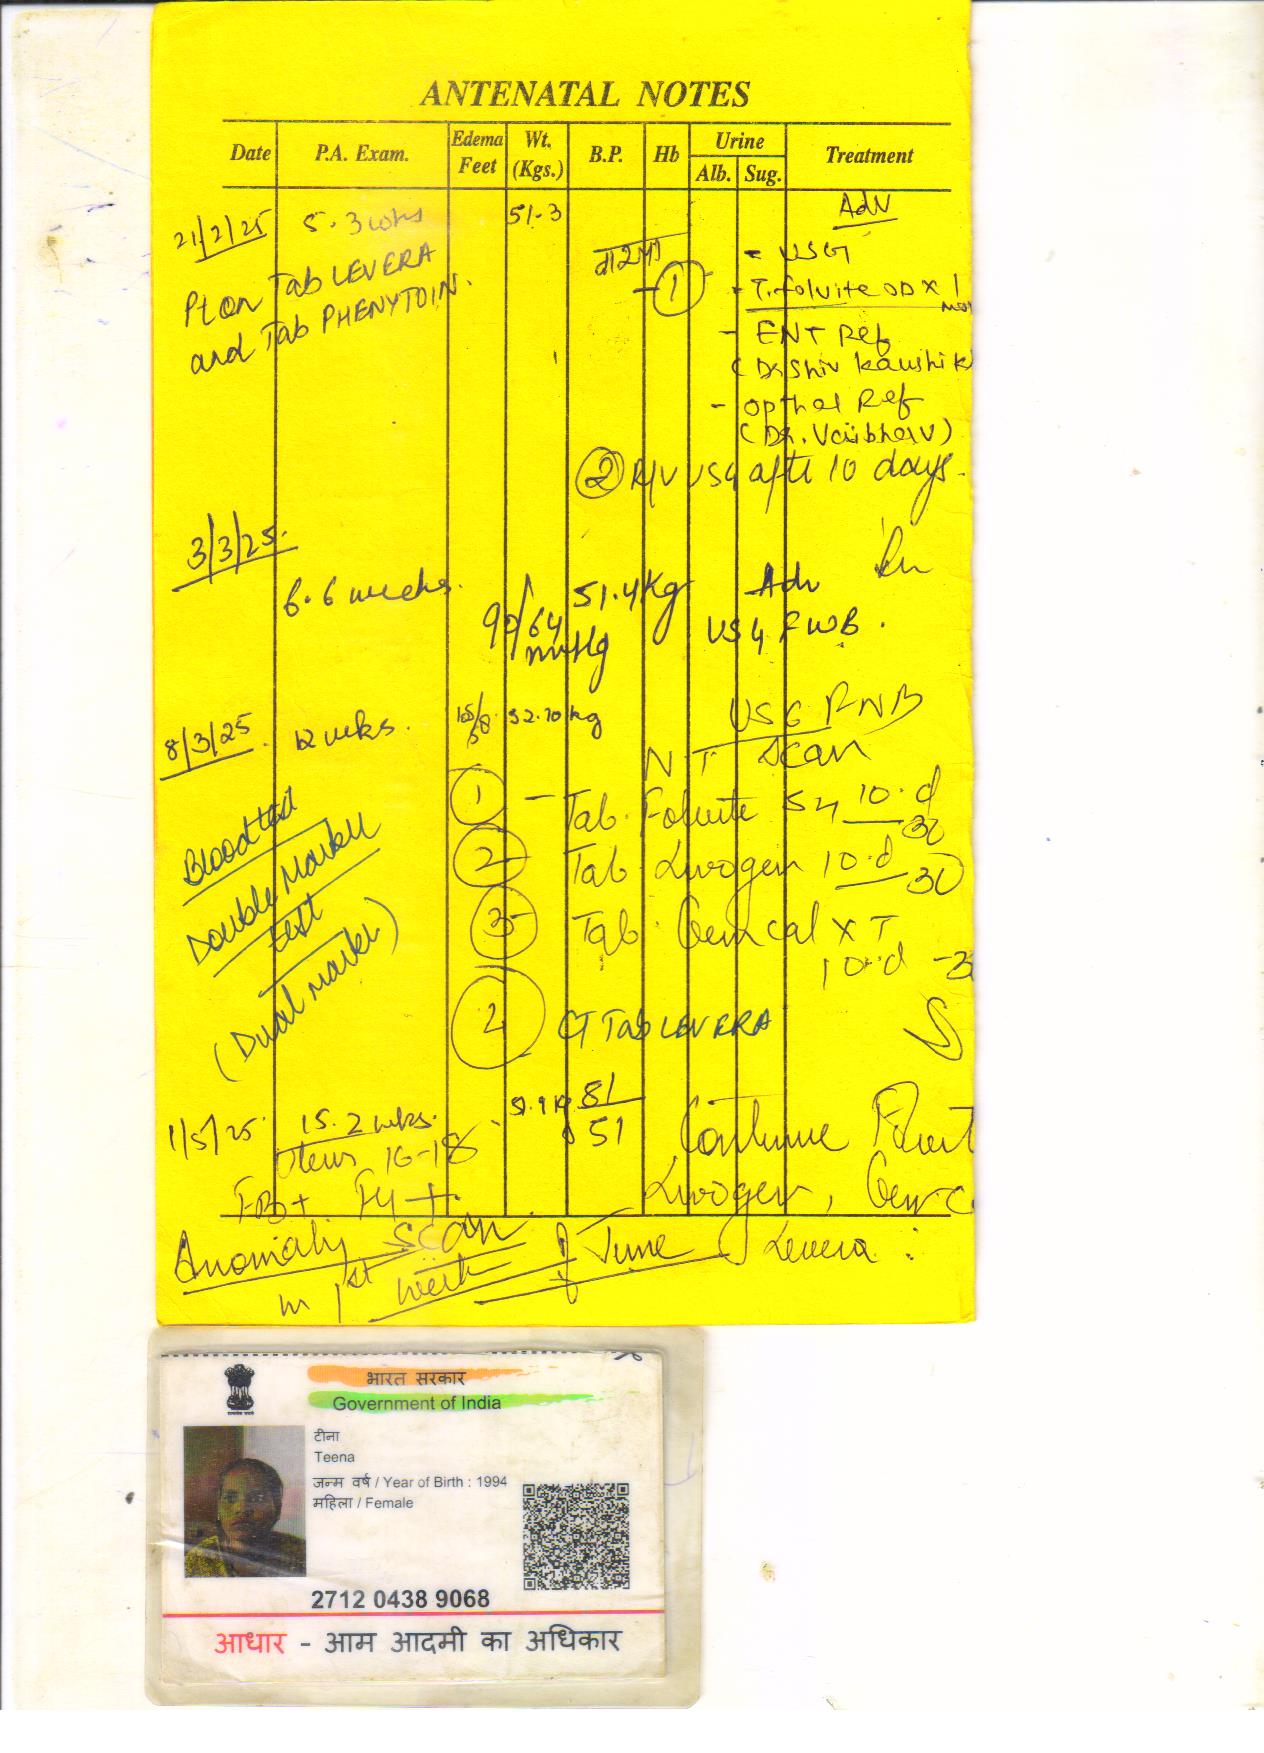 ANTENATAL NOTES
Date P.A. Exam. Edema Feet Wt. (Kgs.) B.P. Hb Urine Alb. Sug. Treatment
21/2/25 5.3 wks 51.3 Adv
- USG
Pt on Tab LEVERA
and Tab PHENYTOIN.
1 - T. folvite OD x 1
- ENT Ref
(Dr Shiv Kaushik
- Opthal Ref
(Dr. Vaibhav)
2 R/V USG after 10 days.
3/3/25.
6.6 weeks. 90/64 mmHg 51.4Kg Adv
USG FWB.
8/3/25. 12 wks. 52.70 kg USG
NT Scan
1 - Tab. Folvite 5 10.d 30
2 Tab Livogen 10.d 30
3 Tab. Gemcal XT
10.d - 3
2 CT Tab LEVERA
Blood test
Double Marker
test
(Dual marker)
1/5/25. 15.2 wks. 81/51 Continue
Uterus 16-18
Livogen, Gem-c
Anomaly Scan
in 1st week of June Levera
भारत सरकार
Government of India
टीना
Teena
जन्म वर्ष / Year of Birth : 1994
महिला / Female
2712 0438 9068
आधार - आम आदमी का अधिकार